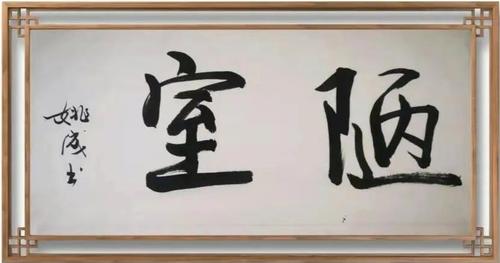 陋室
姚成书